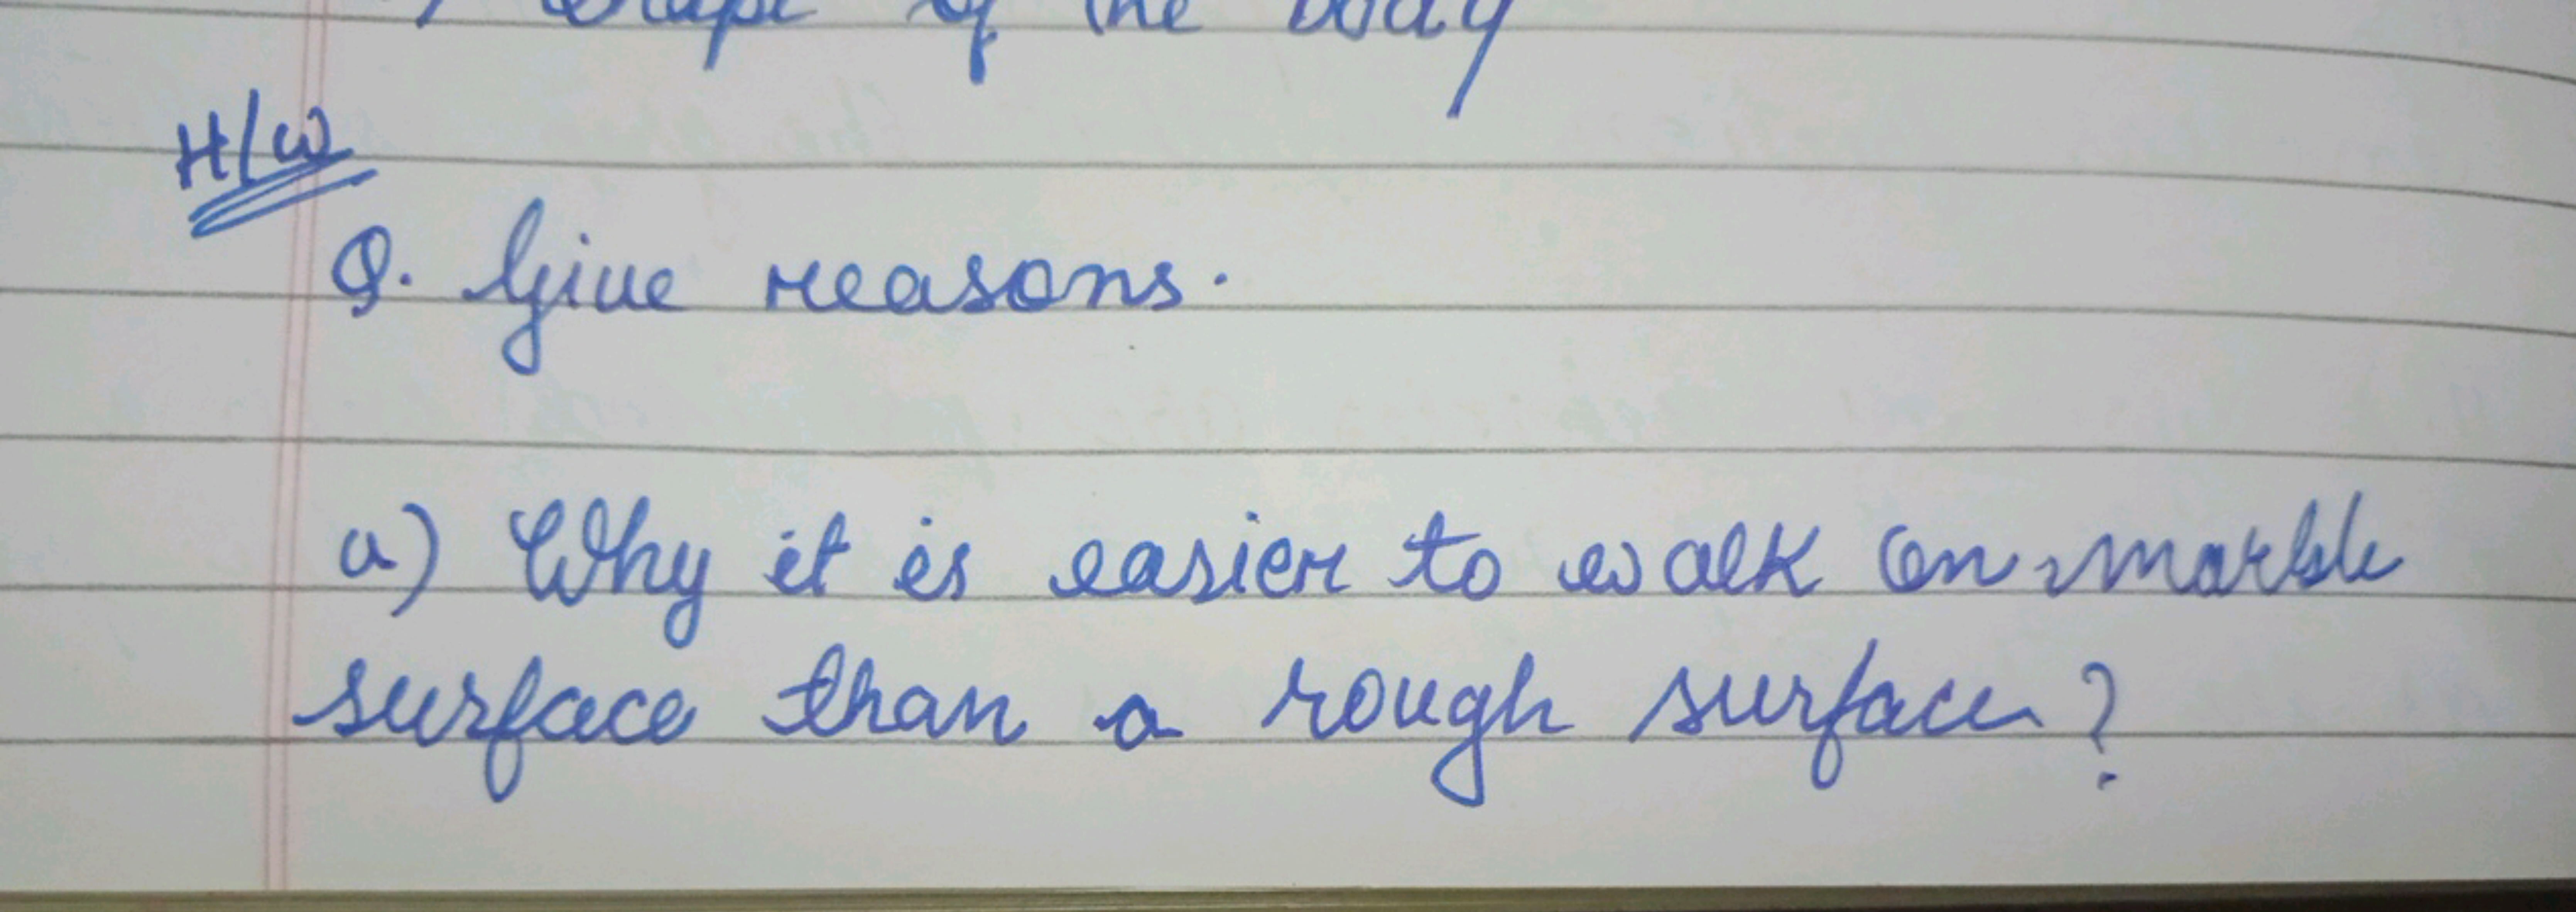 shape of the body
H/W
Q. Give reasons.
a) Why it is easier to walk on marble
surface than a rough surface?